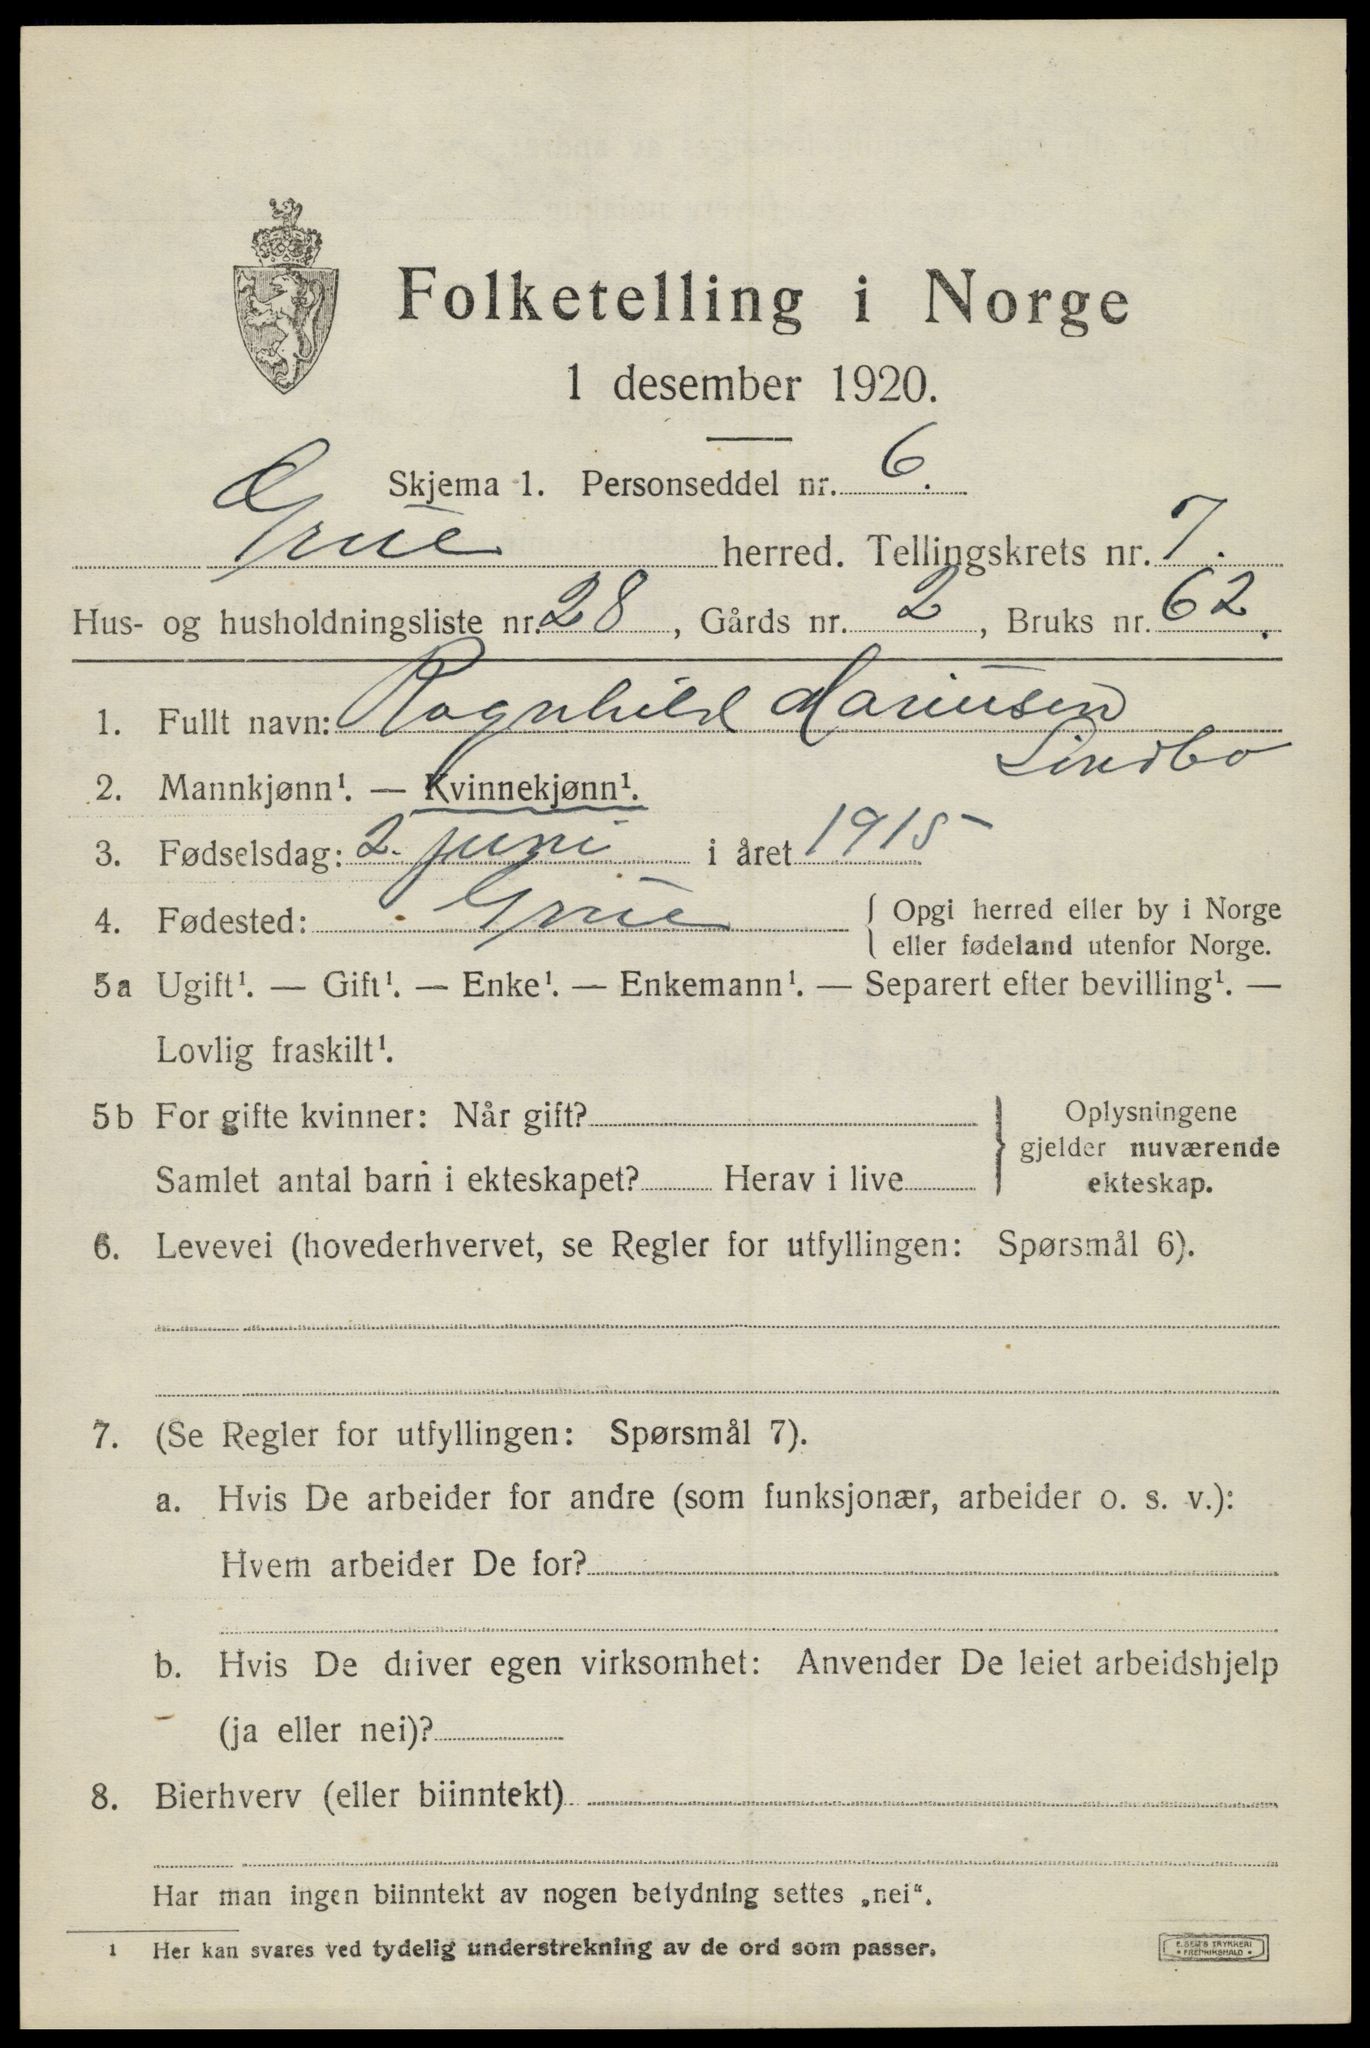 Folketelling i Norge
1 desember 1920.
Skjema 1. Personseddel nr. 6.
Grue herred. Tellingskrets nr. 7.
Hus- og husholdningsliste nr. 28, Gårds nr. 2, Bruks nr. 62.
1. Fullt navn: Ragnhild Mariusen
Lindbo
2. Mannkjønn¹. — Kvinnekjønn¹.
3. Fødselsdag: 2. juni i året 1915
4. Fødested: Grue { Opgi herred eller by i Norge
eller fødeland utenfor Norge.
5a Ugift¹. — Gift¹. — Enke¹. — Enkemann¹. — Separert efter bevilling¹. —
Lovlig fraskilt¹.
5b For gifte kvinner: Når gift?
Samlet antal barn i ekteskapet? Herav i live
} Oplysningene
gjelder nuværende
ekteskap.
6. Levevei (hovederhvervet, se Regler for utfyllingen: Spørsmål 6).
7. (Se Regler for utfyllingen: Spørsmål 7).
a. Hvis De arbeider for andre (som funksjonær, arbeider o. s. v.):
Hvem arbeider De for?
b. Hvis De driver egen virksomhet: Anvender De leiet arbeidshjelp
(ja eller nei)?
8. Bierhverv (eller biinntekt)
Har man ingen biinntekt av nogen betydning settes „nei“.
¹ Her kan svares ved tydelig understrekning av de ord som passer.
E. SEM'S TRYKKERI
• FREDRIKSHALD •